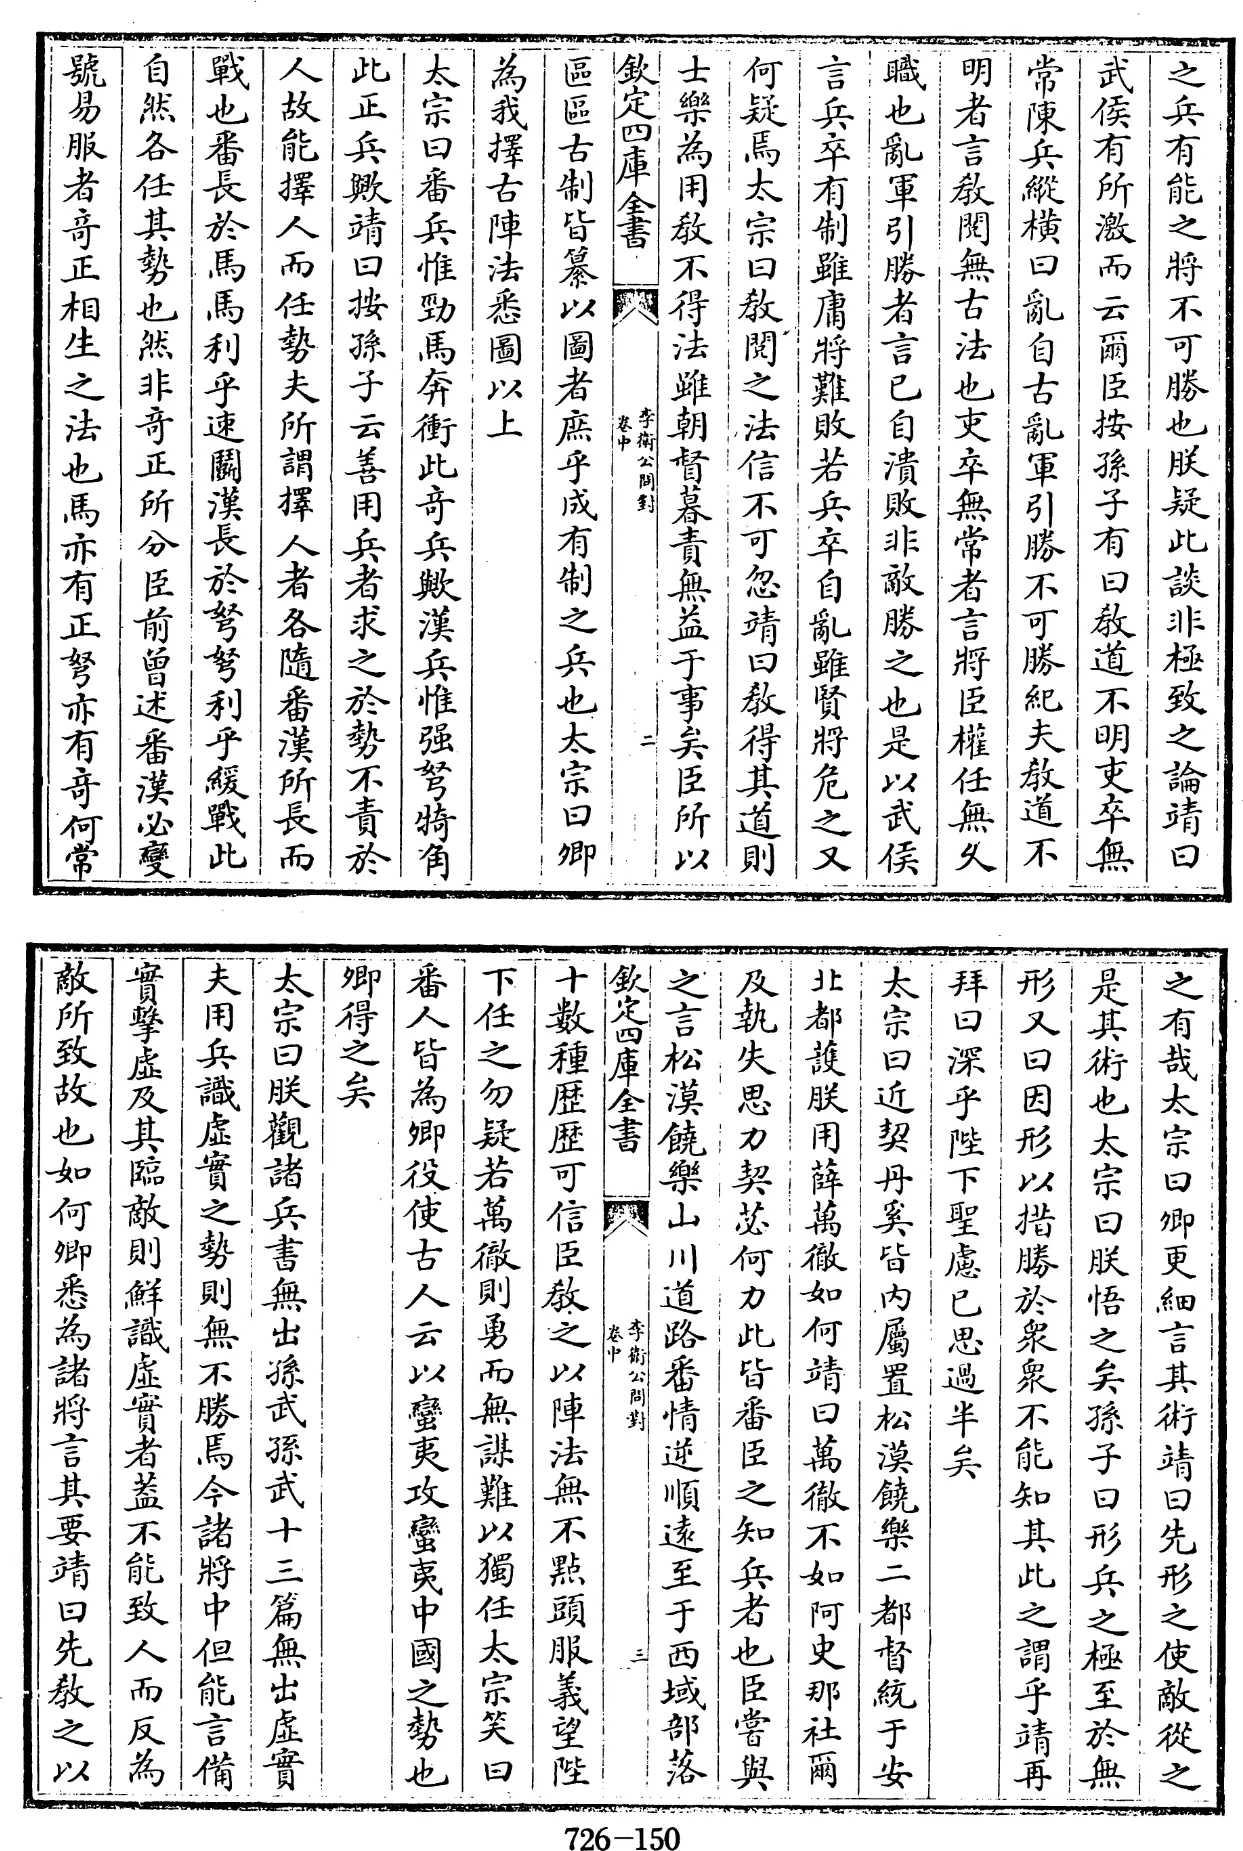 之兵有能之將不可勝也朕疑此談非極致之論靖曰
武侯有所激而云爾臣按孫子有曰教道不明吏卒無
常陳兵縱横曰亂自古亂軍引勝不可勝紀夫教道不
明者言教閲無古法也吏卒無常者言將臣權任無久
職也亂軍引勝者言已自潰敗非敵勝之也是以武侯
言兵卒有制雖庸將難敗若兵卒自亂雖賢將危之又
何疑焉太宗曰教閲之法信不可忽靖曰教得其道則
士樂為用教不得法雖朝督暮責無益于事矣臣所以
欽定四庫全書
李衛公問對
卷中
二
區區古制皆纂以圖者庶乎成有制之兵也太宗曰卿
為我擇古陣法悉圖以上
太宗曰番兵惟勁馬奔衝此奇兵歟漢兵惟强弩犄角
此正兵歟靖曰按孫子云善用兵者求之於勢不責於
人故能擇人而任勢夫所謂擇人者各隨番漢所長而
戰也番長於馬馬利乎速鬭漢長於弩弩利乎緩戰此
自然各任其勢也然非奇正所分臣前曾述番漢必變
號易服者奇正相生之法也馬亦有正弩亦有奇何常
之有哉太宗曰卿更細言其術靖曰先形之使敵從之
是其術也太宗曰朕悟之矣孫子曰形兵之極至於無
形又曰因形以措勝於衆衆不能知其此之謂乎靖再
拜曰深乎陛下聖慮已思過半矣
太宗曰近契丹奚皆内屬置松漠饒樂二都督統于安
北都護朕用薛萬徹如何靖曰萬徹不如阿史那社爾
及執失思力契苾何力此皆番臣之知兵者也臣嘗與
之言松漠饒樂山川道路番情逆順遠至于西域部落
欽定四庫全書
李衛公問對
卷中
三
十數種歴歴可信臣教之以陣法無不㸃頭服義望陛
下任之勿疑若萬徹則勇而無謀難以獨任太宗笑曰
番人皆為卿役使古人云以蠻夷攻蠻夷中國之勢也
卿得之矣
太宗曰朕觀諸兵書無出孫武孫武十三篇無出虚實
夫用兵識虚實之勢則無不勝焉今諸將中但能言備
實擊虚及其臨敵則鮮識虚實者蓋不能致人而反為
敵所致故也如何卿悉為諸將言其要靖曰先教之以
726-150